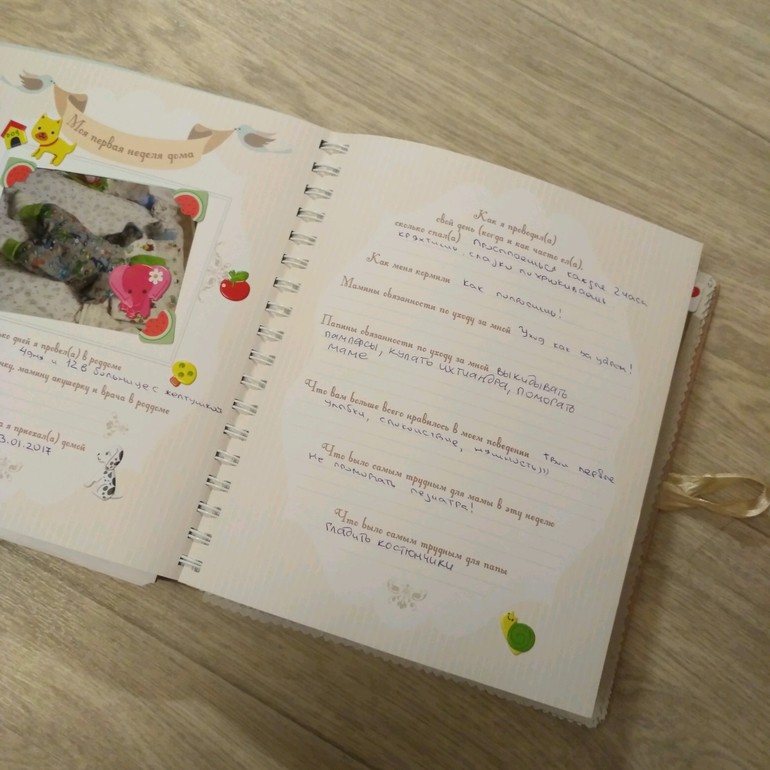 Моя первая неделя дома
дней я провел(а) в роддоме
4 дня и 12 в больнице с желтушкой
маму, акушерку и врача в роддоме
я приехал(а) домой
3.01.2017
Как я проводил(а)
свой день (когда и как часто ел(а),
сколько спал(а) просыпаешься каждые 2 часа
кряхтишь, сладко похрюкиваешь
Как меня кормили как попросишь!
Мамины обязанности по уходу за мной Уход как за удавом!
Папины обязанности по уходу за мной выкидывать
памперсы, купать ихтиандра, помогать
маме
Что вам больше всего нравилось в моем поведении твои первые
улыбки, спокойствие, няшность)))
Что было самым трудным для мамы в эту неделю
не проморгать педиатра!
Что было самым трудным для папы
гладить костюмчики